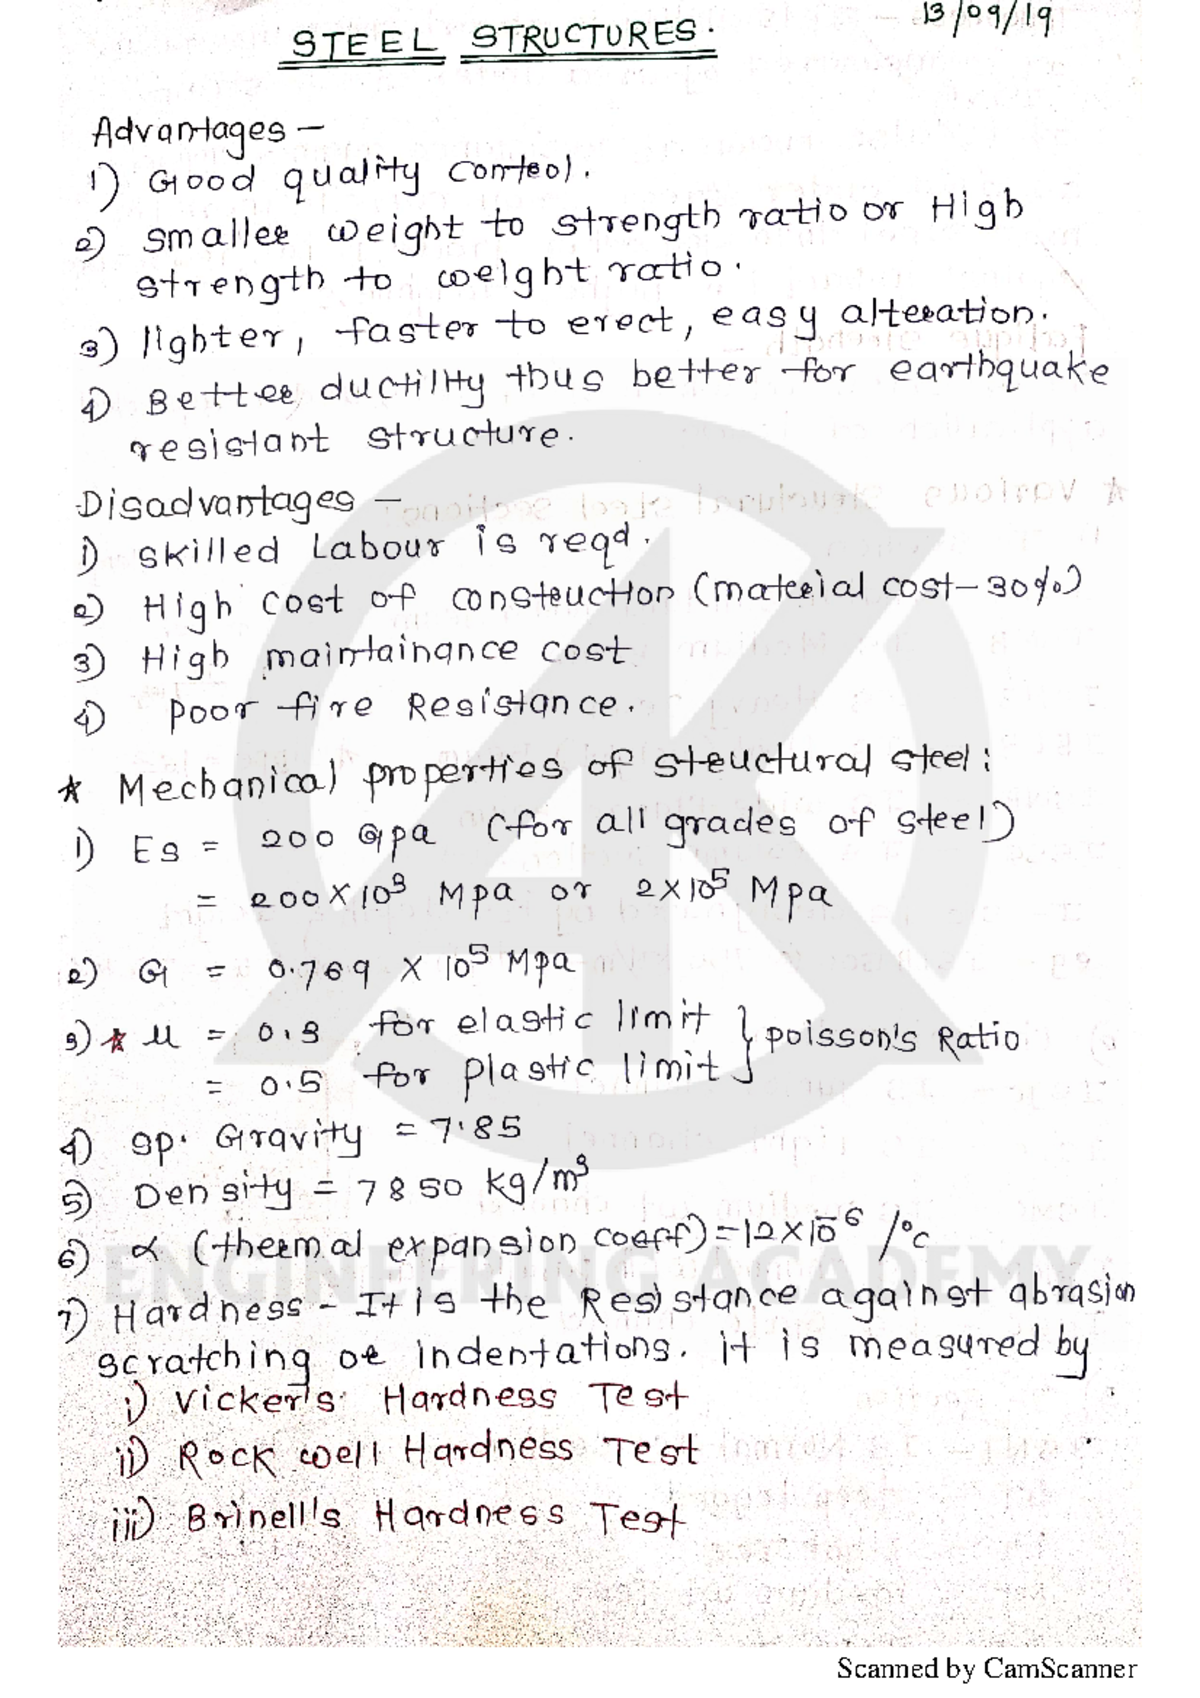 13/09/19
STEEL STRUCTURES.
Advantages –
1) Good quality Control.
2) smaller weight to strength ratio or High
strength to weight ratio.
3) lighter, faster to erect, easy alteration.
4) Better ductility thus better for earthquake
resistant structure.
Disadvantages –
1) skilled Labour is reqd.
2) High cost of construction (material cost – 30%)
3) High maintainance cost
4) Poor fire Resistance.
★ Mechanical properties of structural steel:
1) Es = 200 Gpa (for all grades of steel)
= 200×10³ Mpa or 2×10⁵ Mpa
2) G = 0.769 × 10⁵ Mpa
3) ★ μ = 0.3 for elastic limit } poisson's Ratio
= 0.5 for plastic limit
4) sp. Gravity = 7.85
5) Density = 7850 kg/m³
6) α (thermal expansion coeff) = 12×10⁻⁶ /°c
7) Hardness – It is the Resistance against abrasion
scratching or indentations. it is measured by
i) Vicker's Hardness Test
ii) Rock well Hardness Test
iii) Brinell's Hardness Test
ENGINEERING ACADEMY
Scanned by CamScanner